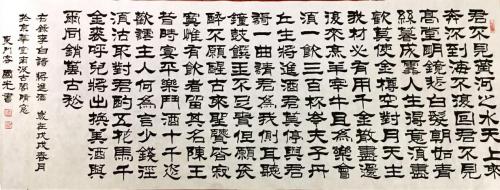 君不見黃河之水天上來
奔流到海不復回君不見
高堂明鏡悲白髮朝如青
絲暮成雪人生得意須盡
歡莫使金樽空對月天生
我材必有用千金散盡還
復來烹羊宰牛且為樂會
須一飲三百杯岑夫子丹
丘生將進酒君莫停與君
謌一曲請君為我側耳聽
鐘鼓饌玉不足貴但願長
醉不願醒古來聖賢皆寂
寞惟有飲者留其名陳王
昔時宴平樂鬥酒十千恣
歡謔主人何為言少錢徑
須沽取對君酌五花馬千
金裘呼兒將出換美酒與
爾同銷萬古愁
右錄李白詩將進酒 歲在戊戌春月
於京華堂南漢古閣晴窗
門客國光書